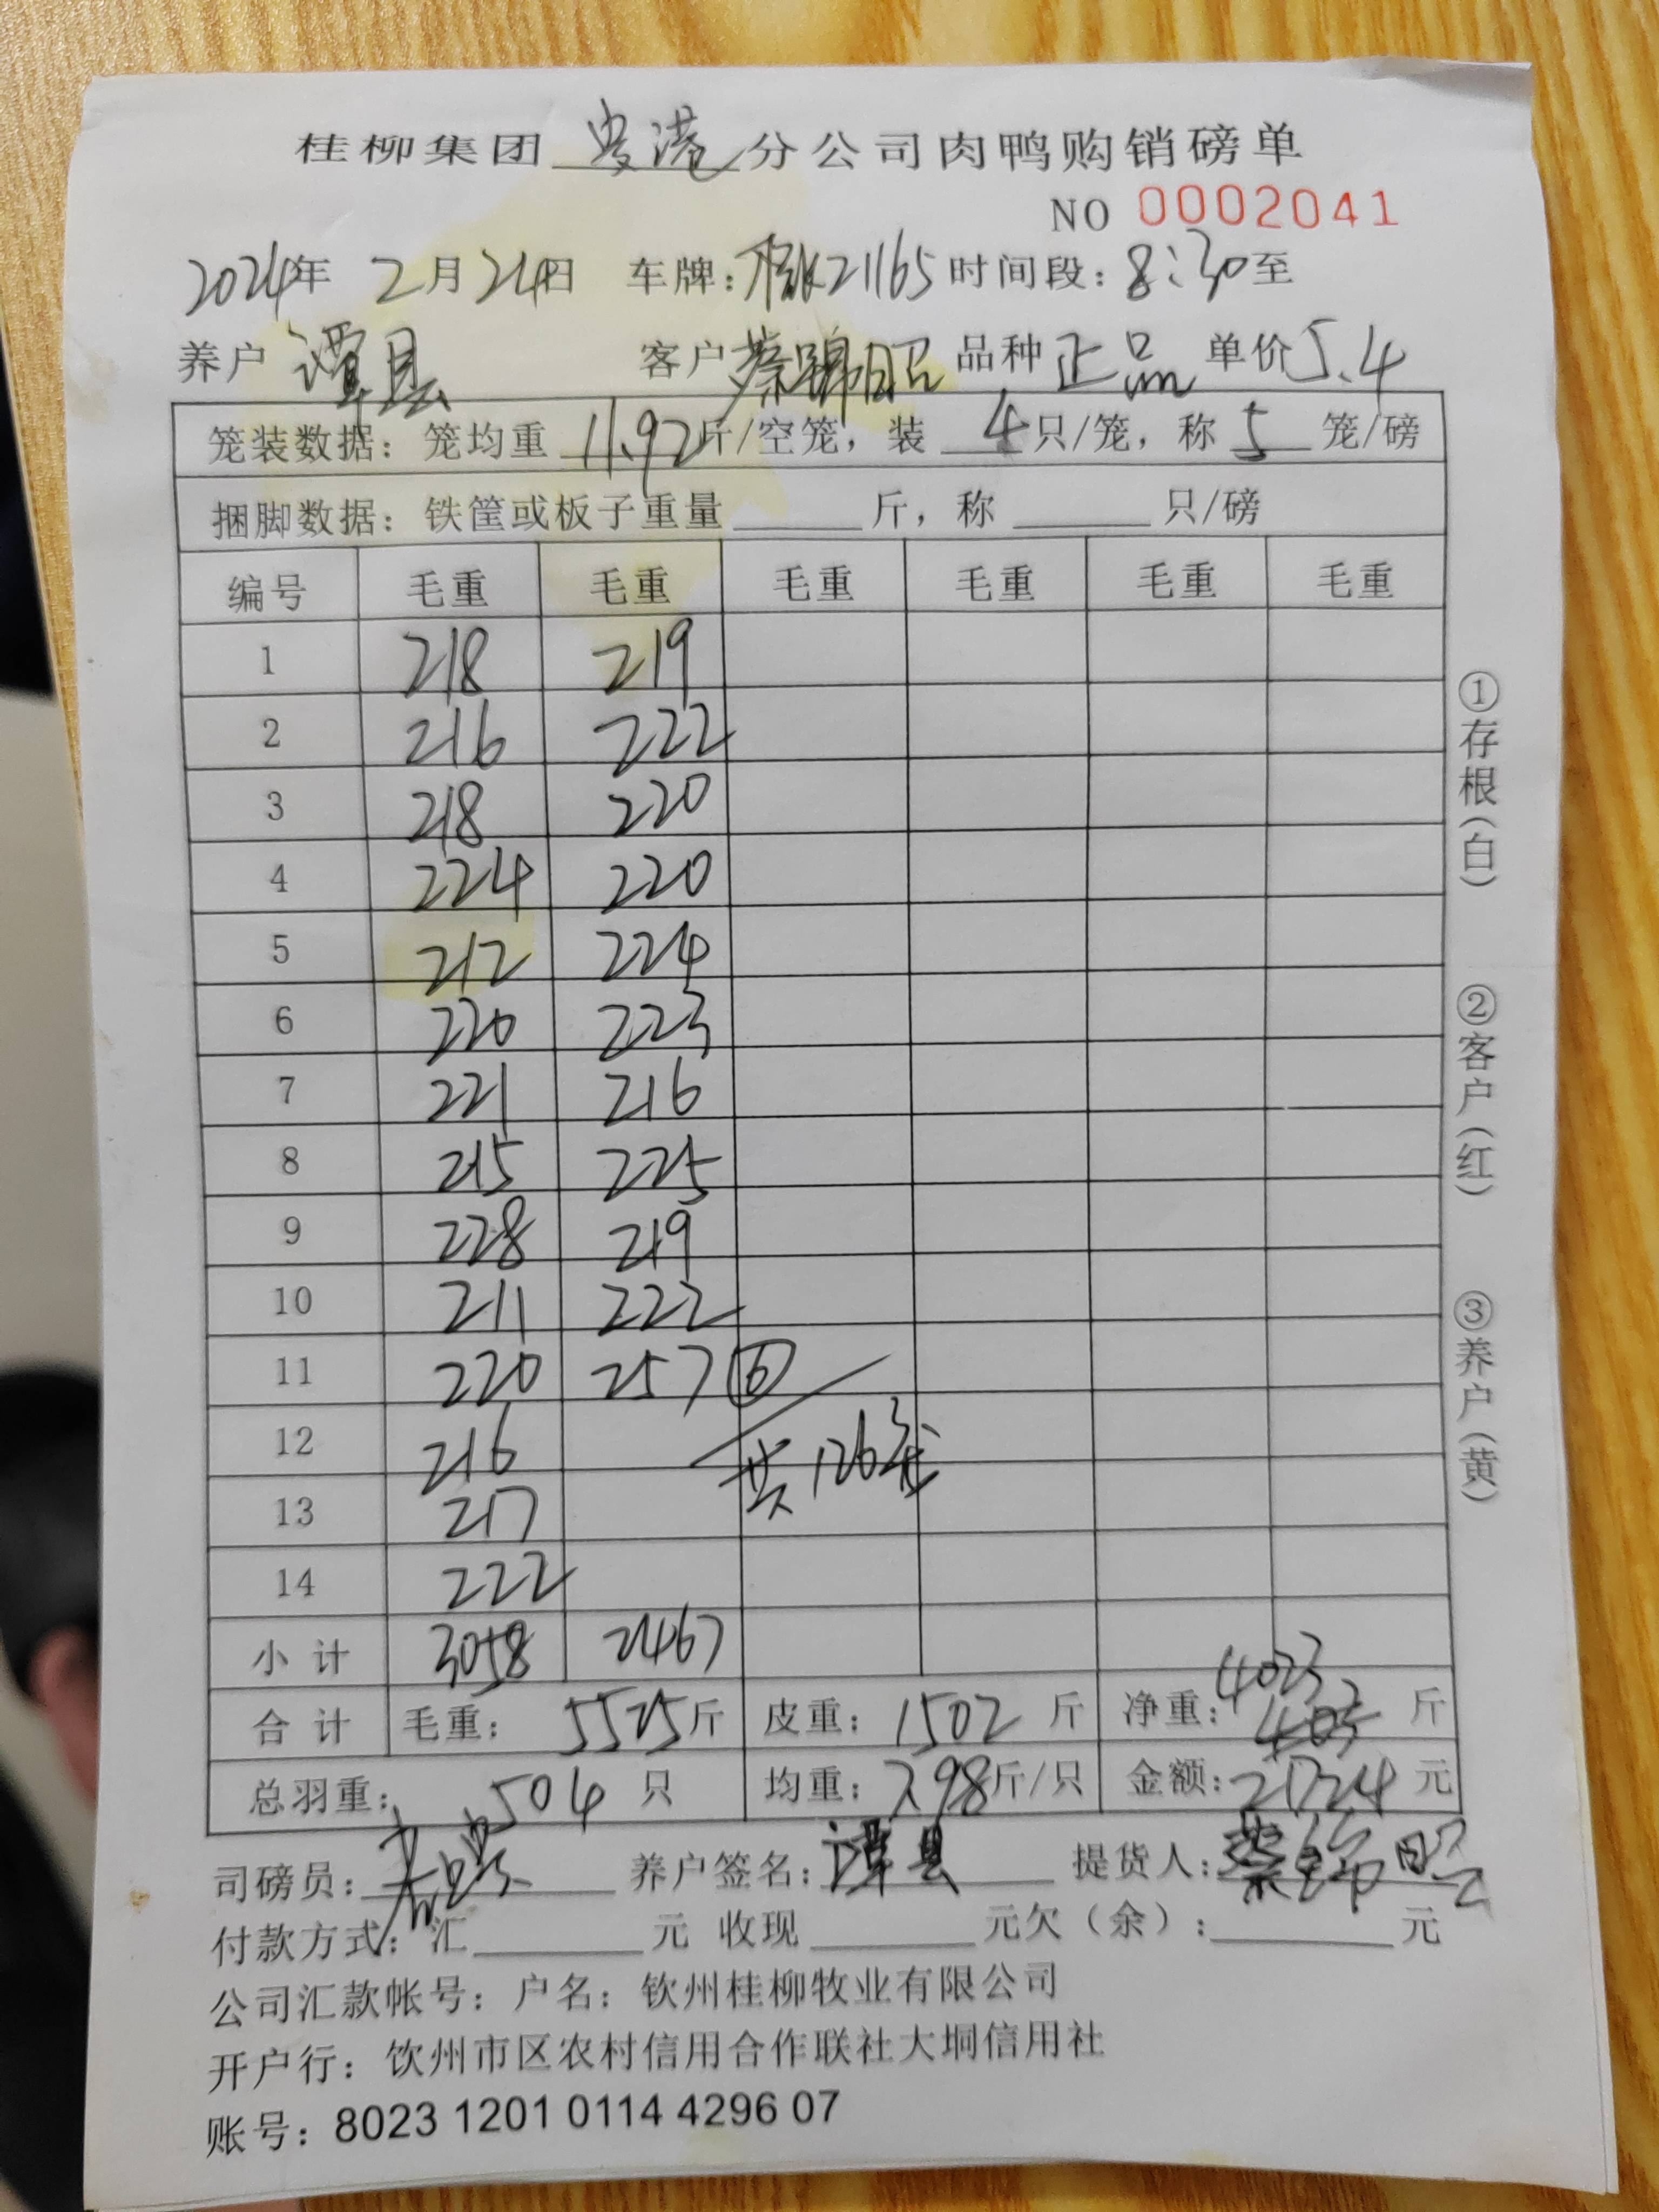 桂柳集团 贵港 分公司肉鸭购销磅单
NO 0002041
2024年 2月24日 车牌: 21165 时间段: 8:30至
养户 谭县 客户 蔡锦昭 品种 正品 单价 5.4
笼装数据: 笼均重 11.92斤/空笼, 装 4只/笼, 称 5 笼/磅
捆脚数据: 铁筐或板子重量 斤, 称 只/磅
编号 毛重 毛重 毛重 毛重 毛重 毛重
1 218 219
2 216 222
3 218 220
4 224 220
5 212 224
6 220 223
7 221 216
8 215 225
9 228 219
10 211 222
11 220 257 ⑥
12 216 共126笼
13 217
14 222
小计 3058 2467
合计 毛重: 5525斤 皮重: 1502 斤 净重: 4023 斤
总羽重: 504 只 均重: 7.98斤/只 金额: 21724 元
司磅员: 养户签名: 谭县 提货人: 蔡锦昭
付款方式: 汇 元 收现 元欠(余): 元
公司汇款帐号: 户名: 钦州桂柳牧业有限公司
开户行: 钦州市区农村信用合作联社大垌信用社
账号: 8023 1201 0114 4296 07
①存根(白)
②客户(红)
③养户(黄)